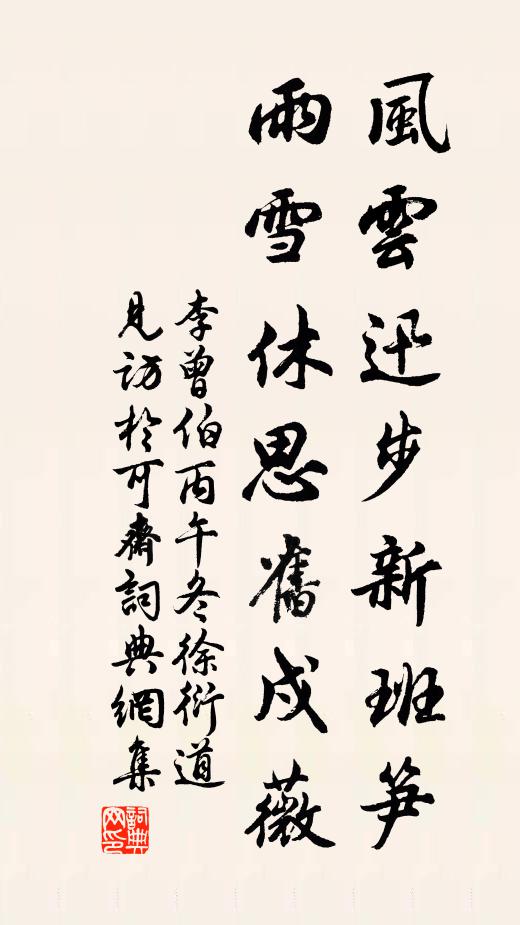 風雲迅步新班筍
雨雪休思舊戍薇
李曾伯丙午冬徐衍道
見訪於可齋詞典網集
詞典網印